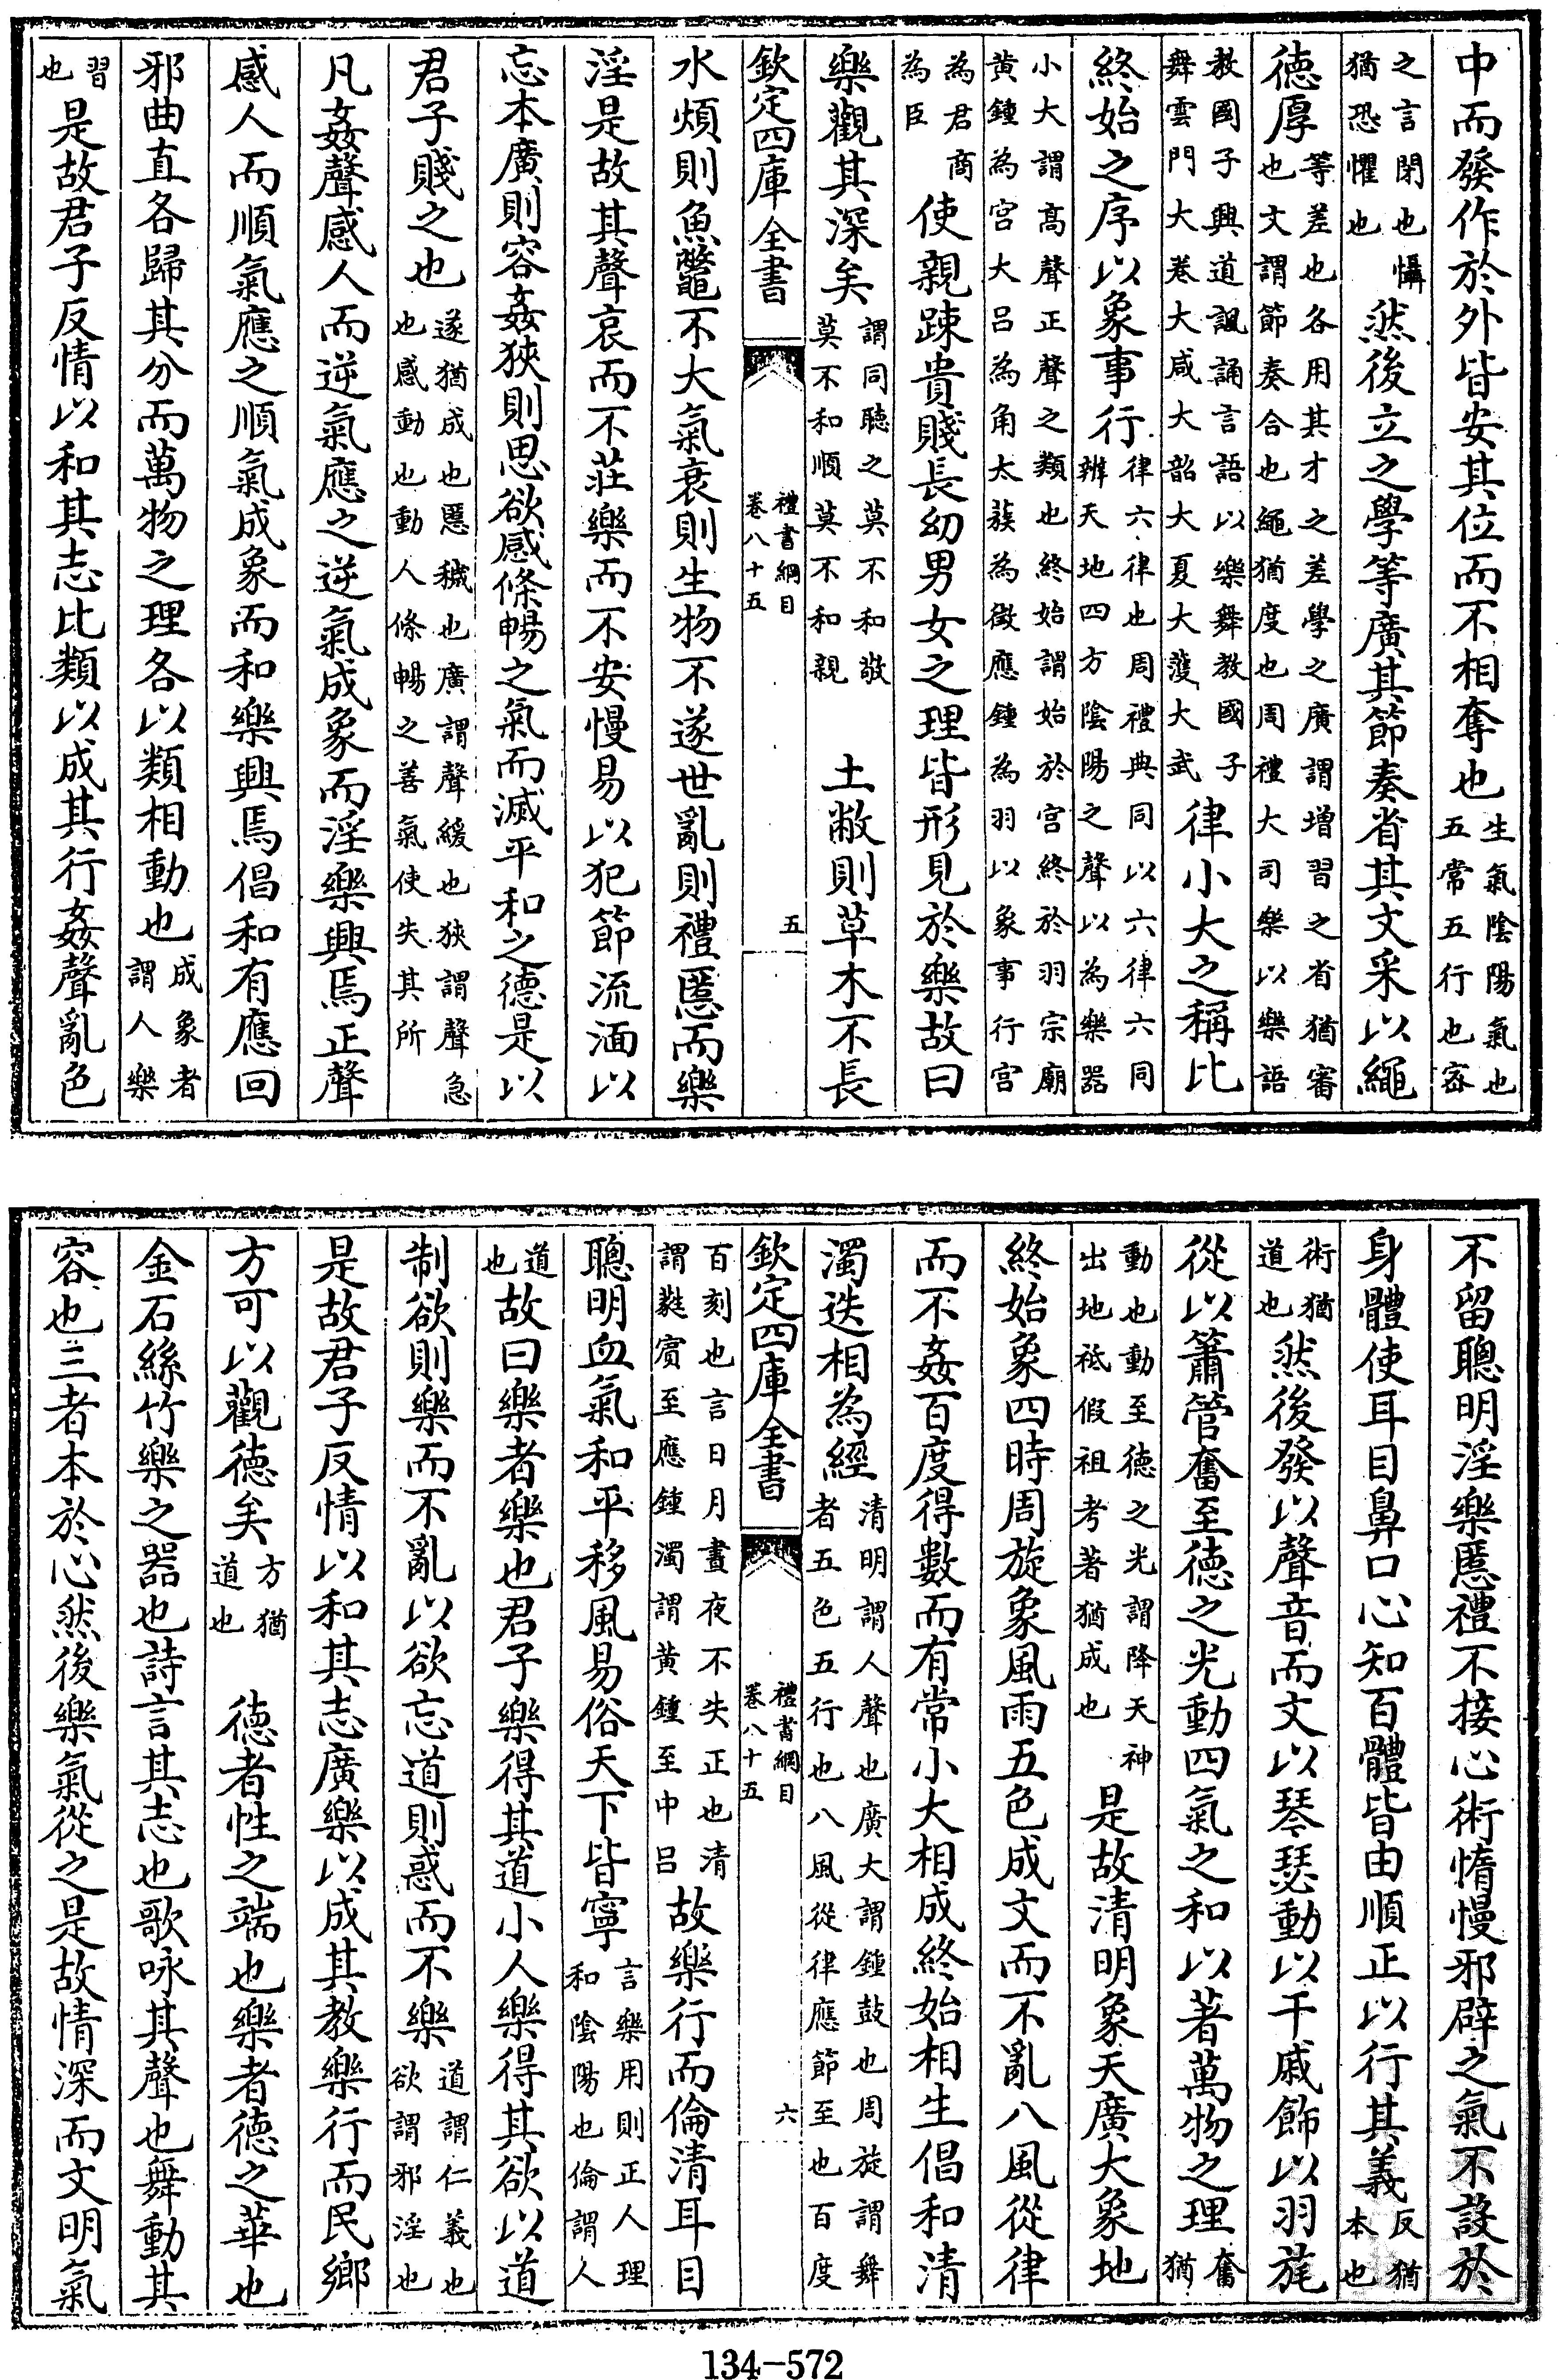 中而發作於外皆安其位而不相奪也生氣陰陽氣也五常五行也宻
之言閉也懾猶恐懼也然後立之學等廣其節奏省其文采以繩
德厚等差也各用其才之差學之廣謂增習之省猶審也文謂節奏合也繩猶度也周禮大司樂以樂語
教國子興道諷誦言語以樂舞教國子舞雲門大卷大咸大韶大夏大濩大武律小大之稱比
終始之序以象事行律六律也周禮典同以六律六同辨天地四方陰陽之聲以為樂器
小大謂高聲正聲之類也終始謂始於宮終於羽宗廟黃鍾為宮大呂為角太蔟為徵應鍾為羽以象事行宮
為君商為臣使親踈貴賤長幼男女之理皆形見於樂故曰
樂觀其深矣謂同聽之莫不和敬莫不和順莫不和親土敝則草木不長
欽定四庫全書 禮書綱目卷八十五 五
水煩則魚鼈不大氣衰則生物不遂世亂則禮慝而樂
淫是故其聲哀而不莊樂而不安慢易以犯節流湎以
忘本廣則容姦狹則思欲感條暢之氣而滅平和之德是以
君子賤之也遂猶成也慝穢也廣謂聲緩也狹謂聲急也感動也動人條暢之善氣使失其所
凡姦聲感人而逆氣應之逆氣成象而淫樂興焉正聲
感人而順氣應之順氣成象而和樂興焉倡和有應回
邪曲直各歸其分而萬物之理各以類相動也成象者謂人樂
習也是故君子反情以和其志比類以成其行姦聲亂色
不留聰明淫樂慝禮不接心術惰慢邪辟之氣不設於
身體使耳目鼻口心知百體皆由順正以行其義反猶本也
術猶道也然後發以聲音而文以琴瑟動以干戚飾以羽旄
從以簫管奮至德之光動四氣之和以著萬物之理奮猶
動也動至德之光謂降天神出地祗假祖考著猶成也是故清明象天廣大象地
終始象四時周旋象風雨五色成文而不亂八風從律
而不姦百度得數而有常小大相成終始相生倡和清
濁迭相為經清明謂人聲也廣大謂鍾鼓也周旋謂舞者五色五行也八風從律應節至也百度
欽定四庫全書 禮書綱目卷八十五 六
百刻也言日月晝夜不失正也清謂蕤賓至應鍾濁謂黃鍾至中呂故樂行而倫清耳目
聰明血氣和平移風易俗天下皆寧言樂用則正人理和陰陽也倫謂人
道也故曰樂者樂也君子樂得其道小人樂得其欲以道
制欲則樂而不亂以欲忘道則惑而不樂道謂仁義也欲謂邪淫也
是故君子反情以和其志廣樂以成其教樂行而民鄉
方可以觀德矣方猶道也德者性之端也樂者德之華也
金石絲竹樂之器也詩言其志也歌咏其聲也舞動其
容也三者本於心然後樂氣從之是故情深而文明氣
134-572